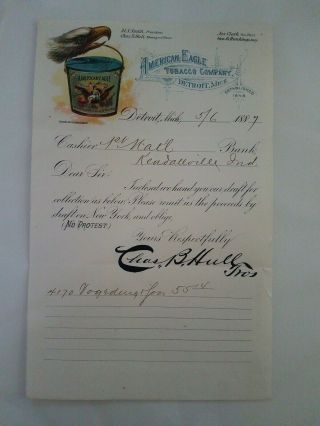 M.C. Smith President
Chas. B. Hull
Jas. Clark
AMERICAN EAGLE
TOBACCO COMPANY.
DETROIT, MICH.
ESTABLISHED
1848
AMERICAN EAGLE
Detroit, Mich. 5/6 1887
Cashier 1st Natl Bank
Kendallville Ind.
Dear Sir:
Inclosed we hand you our draft for
collection as below. Please remit us the proceeds by
draft on New York, and oblige,
(NO PROTEST.)
Yours Respectfully
Chas. B. Hull
Treas
4170 55